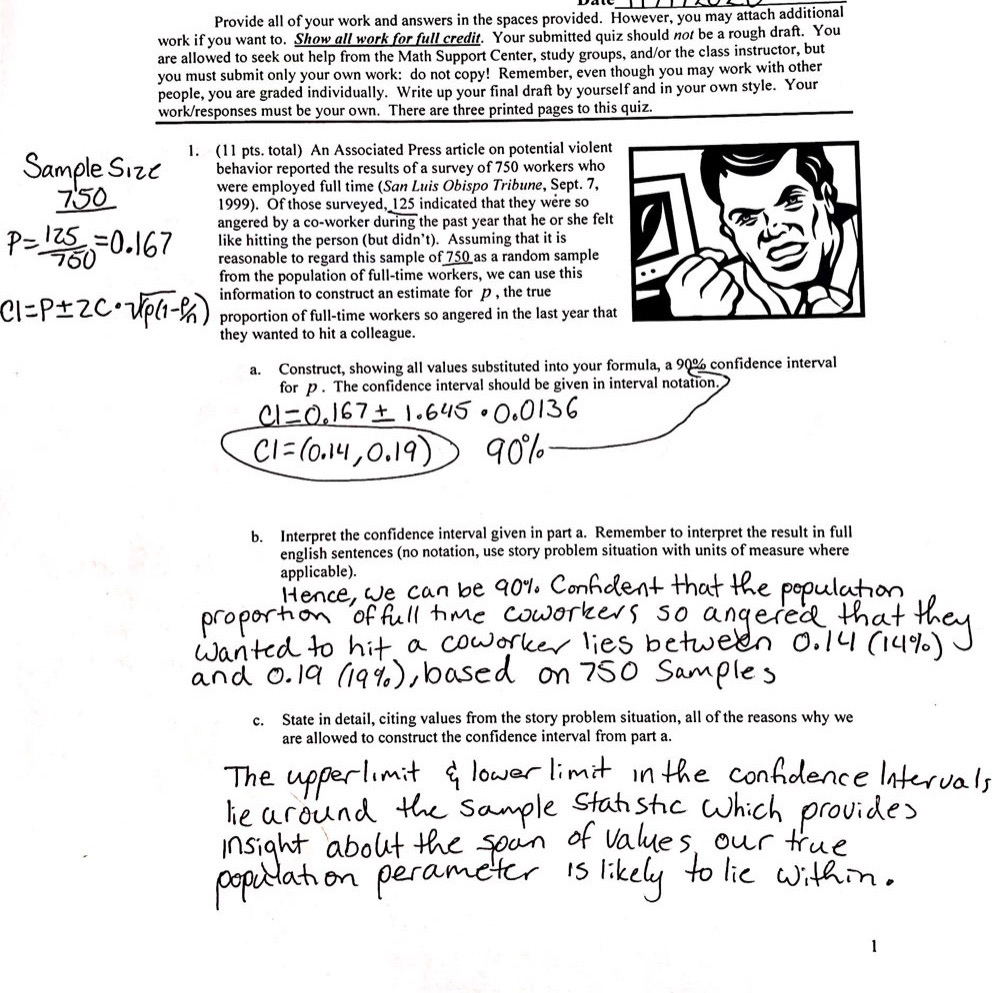 Provide all of your work and answers in the spaces provided. However, you may attach additional
work if you want to. Show all work for full credit. Your submitted quiz should not be a rough draft. You
are allowed to seek out help from the Math Support Center, study groups, and/or the class instructor, but
you must submit only your own work: do not copy! Remember, even though you may work with other
people, you are graded individually. Write up your final draft by yourself and in your own style. Your
work/responses must be your own. There are three printed pages to this quiz.
Sample Size
750
P=125/750=0.167
CI=P±ZC·√p(1-P/n)
1. (11 pts. total) An Associated Press article on potential violent
behavior reported the results of a survey of 750 workers who
were employed full time (San Luis Obispo Tribune, Sept. 7,
1999). Of those surveyed, 125 indicated that they were so
angered by a co-worker during the past year that he or she felt
like hitting the person (but didn't). Assuming that it is
reasonable to regard this sample of 750 as a random sample
from the population of full-time workers, we can use this
information to construct an estimate for p, the true
proportion of full-time workers so angered in the last year that
they wanted to hit a colleague.
a. Construct, showing all values substituted into your formula, a 90% confidence interval
for p. The confidence interval should be given in interval notation.
CI=0.167± 1.645 •0.0136
CI=(0.14,0.19) 90%
b. Interpret the confidence interval given in part a. Remember to interpret the result in full
english sentences (no notation, use story problem situation with units of measure where
applicable).
Hence, we can be 90% Confident that the population
proportion of full time coworkers so angered that they
wanted to hit a coworker lies between 0.14 (14%)
and 0.19 (19%), based on 750 Samples
c. State in detail, citing values from the story problem situation, all of the reasons why we
are allowed to construct the confidence interval from part a.
The upper limit & lower limit in the confidence Intervals
lie around the Sample Statistic which provides
insight about the span of values our true
population perameter is likely to lie within.
1